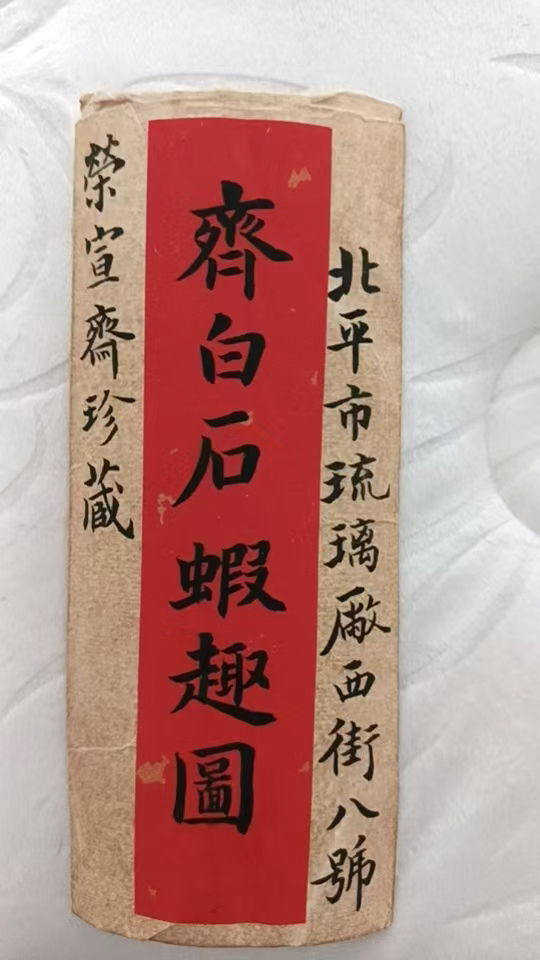 北平市琉璃廠西街八號
齊白石蝦趣圖
榮宣齋珍藏